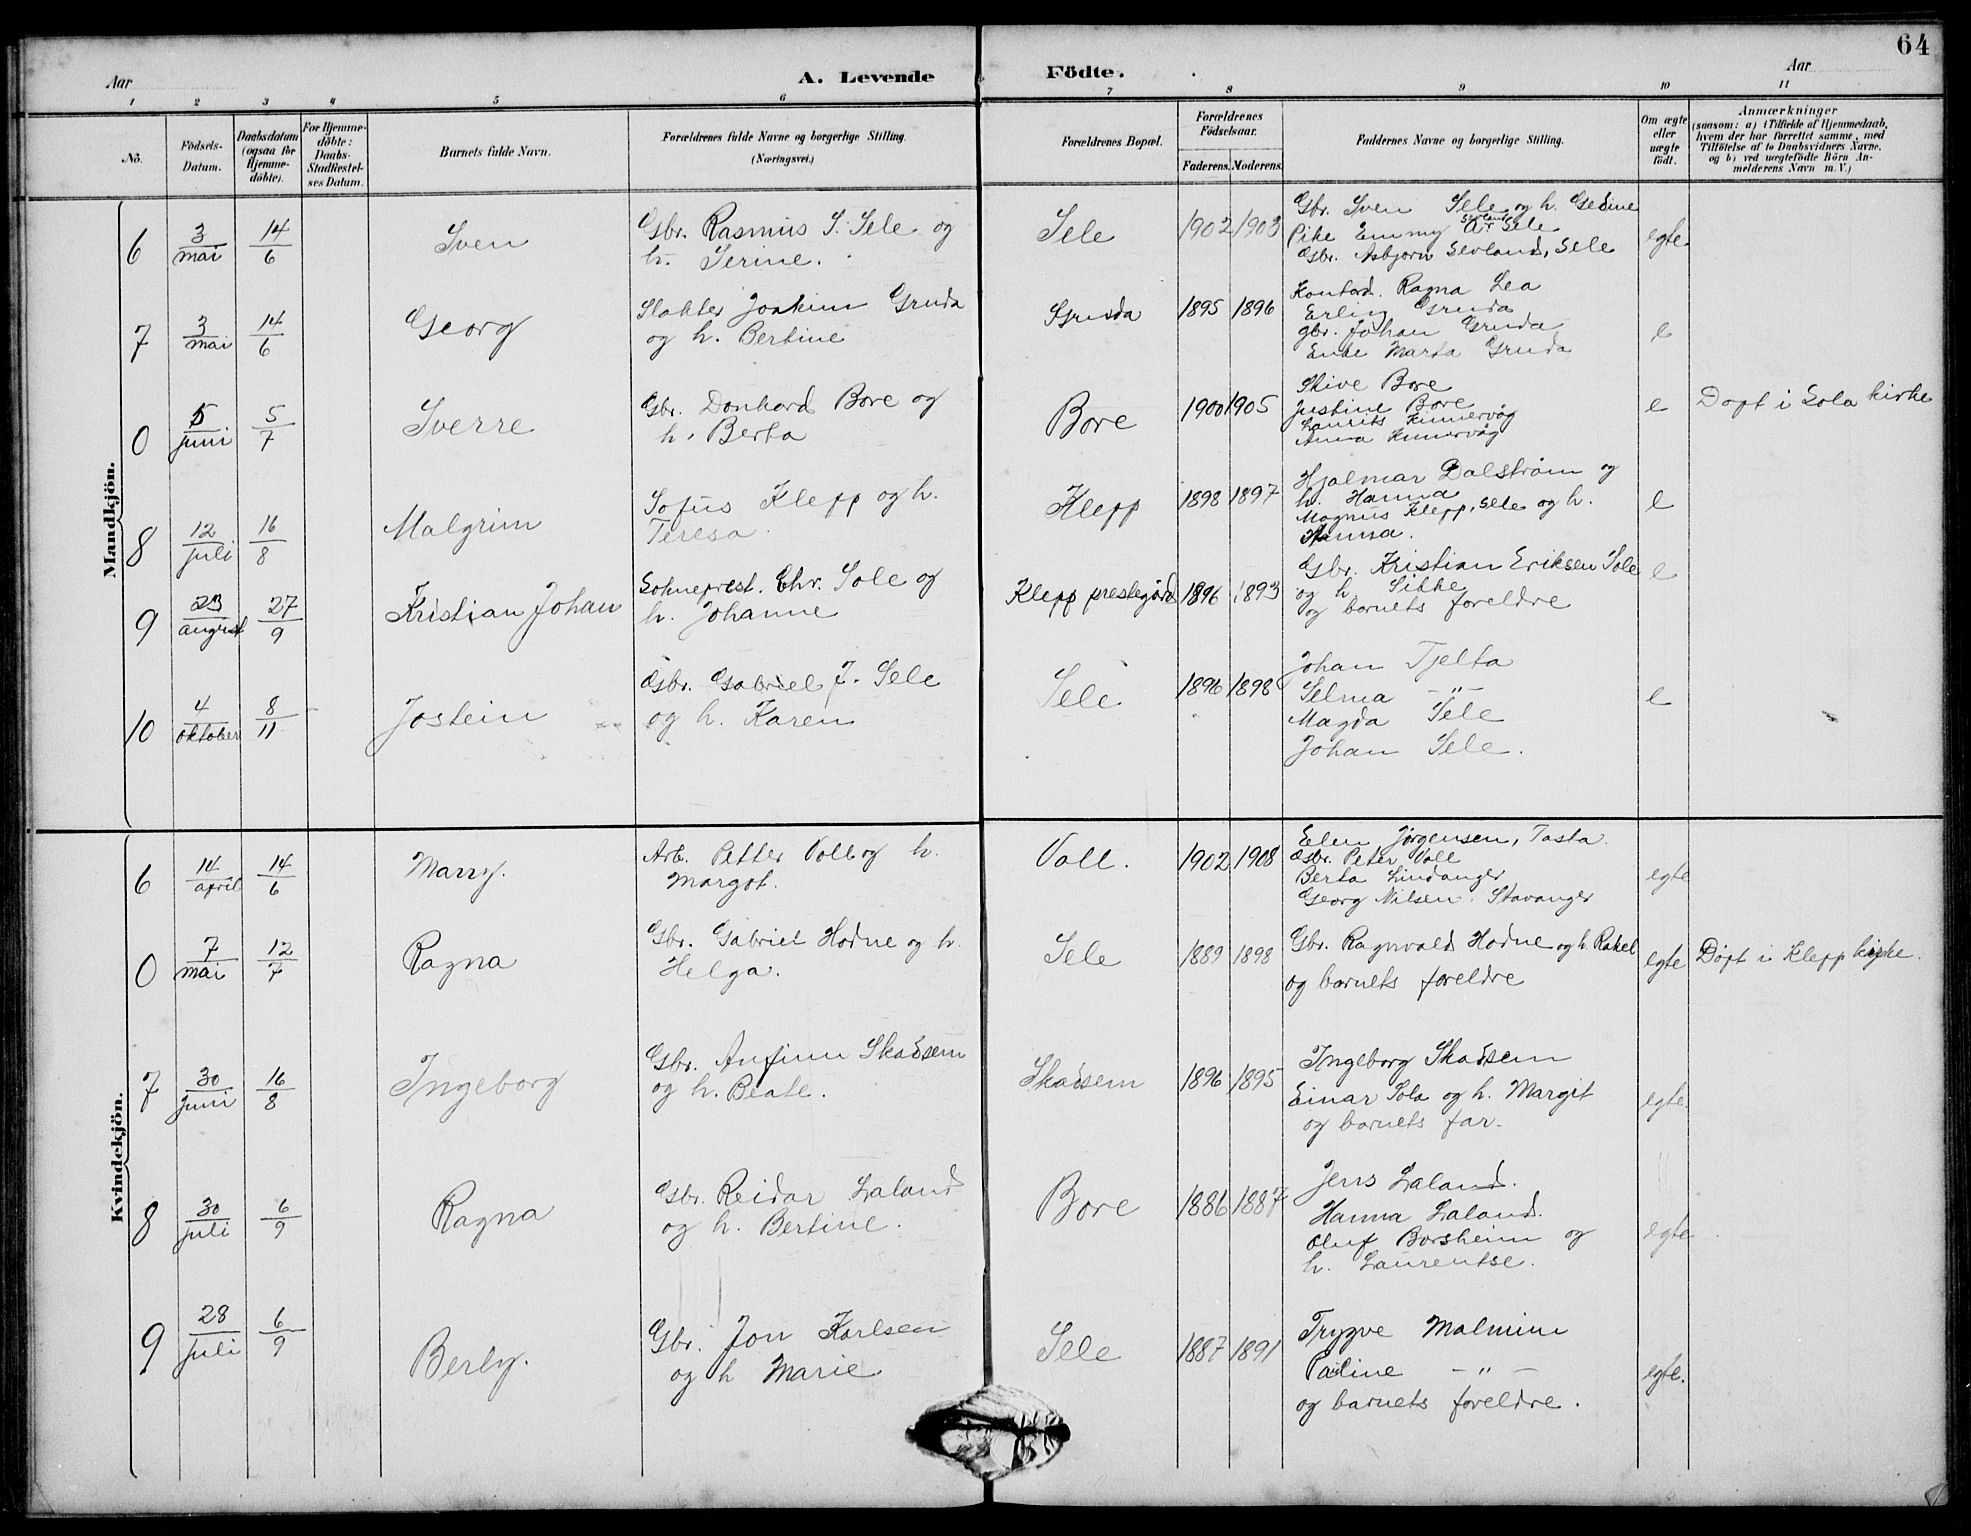 64
Aar
A. Levende Födte.
Aar
1 2 3 4 5 6 7 8 9 10 11
No.
Födsels-Datum.
Daabsdatum (ogsaa for Hjemme-döbte).
For Hjemme-döbte: Daabs-Stadfæstel-ses Datum.
Barnets fulde Navn.
Forældrenes fulde Navne og borgerlige Stilling. (Næringsvei.)
Forældrenes Bopæl.
Forældrenes Födselsaar.
Faderens. Moderens.
Faddernes Navne og borgerlige Stilling.
Om ægte eller uægte födt.
Anmærkninger
(saasom: a) i Tilfælde af Hjemmedaab,
hvem der har forrettet samme, med
Tilföielse af to Daabsvidners Navne,
og b) ved uægtefödte Börn An-
melderens Navn m.V.)
Mandkjön.
6 3/mai 14/6 Sven
Gbr. Rasmus S. Sele og
h. Serine.
Sele 1902 1903
Gbr. Sven Sele og h. Gesine
Pike Emmy Sele
Gbr. Asbjørn Sevland, Sele
egte
7 3/mai 14/6 Georg
Slakter Joakim Gruda
og h. Bertine
Gruda 1895 1896
Kontord. Ragna Lea
Erling Gruda
gbr. Johan Gruda
Enke Marta Gruda
e
0 5/juni 5/7 Sverre
Gbr. Donhard Bore og
h. Berta
Bore 1900 1905
Skive Bore
Justine Bore
Laurits Kinnervåg
Anna Kinnervåg
e Døpt i Sola kirke
8 12/juli 16/8 Malgrim
Sofus Klepp og h.
Teresa.
Klepp 1898 1897
Hjalmar Dalstrøm og
h. Hanna
Magnus Klepp, Sele og h.
Hanna.
e
9 23/august 27/9 Kristian Johan
Sokneprest. Chr. Sole og
h. Johanne
Klepp prestegård 1896 1893
Gbr. Kristian Eriksen Sole
og h. Sikke
og barnets foreldre
e
10 4/oktober 8/11 Jostein
Gbr. Gabriel J. Sele
og h. Karen
Sele 1896 1898
Johan Tjelta
Selma -"-
Magda Sele
Johan Sele.
e
Kvindekjön.
6 14/april 14/6 Marry.
Arb. Petter Voll og h.
Margot.
Voll. 1902 1908
Elen Jørgensen, Tasta.
Gbr. Peter Voll
Berta Lindanger
Georg Nilsen. Stavanger
egte
0 7/mai 12/7 Ragna
Gbr. Gabriel Hodne og h.
Helga.
Sele 1889 1898
Gbr. Ragnvald Hodne og h. Rakel
og barnets foreldre
egte Døpt i Klepp kirke.
7 30/juni 16/8 Ingeborg
Gbr. Anfinn Skadsem
og h. Beate.
Skadsem 1896 1895
Ingeborg Skadsem
Einar Sola og h. Margit
og barnets far.
egte.
8 30/juli 6/9 Ragna
Gbr. Reidar Laland
og h. Bertine.
Bore 1886 1887
Jens Laland.
Hanna Laland.
Oluf Borsheim og
h. Laurentse.
egte
9 28/juli 6/9 Berly.
Gbr. Jon Karlsen
og h Marie
Sele 1887 1891
Trygve Malmim
Pauline -"-
og barnets foreldre.
egte.